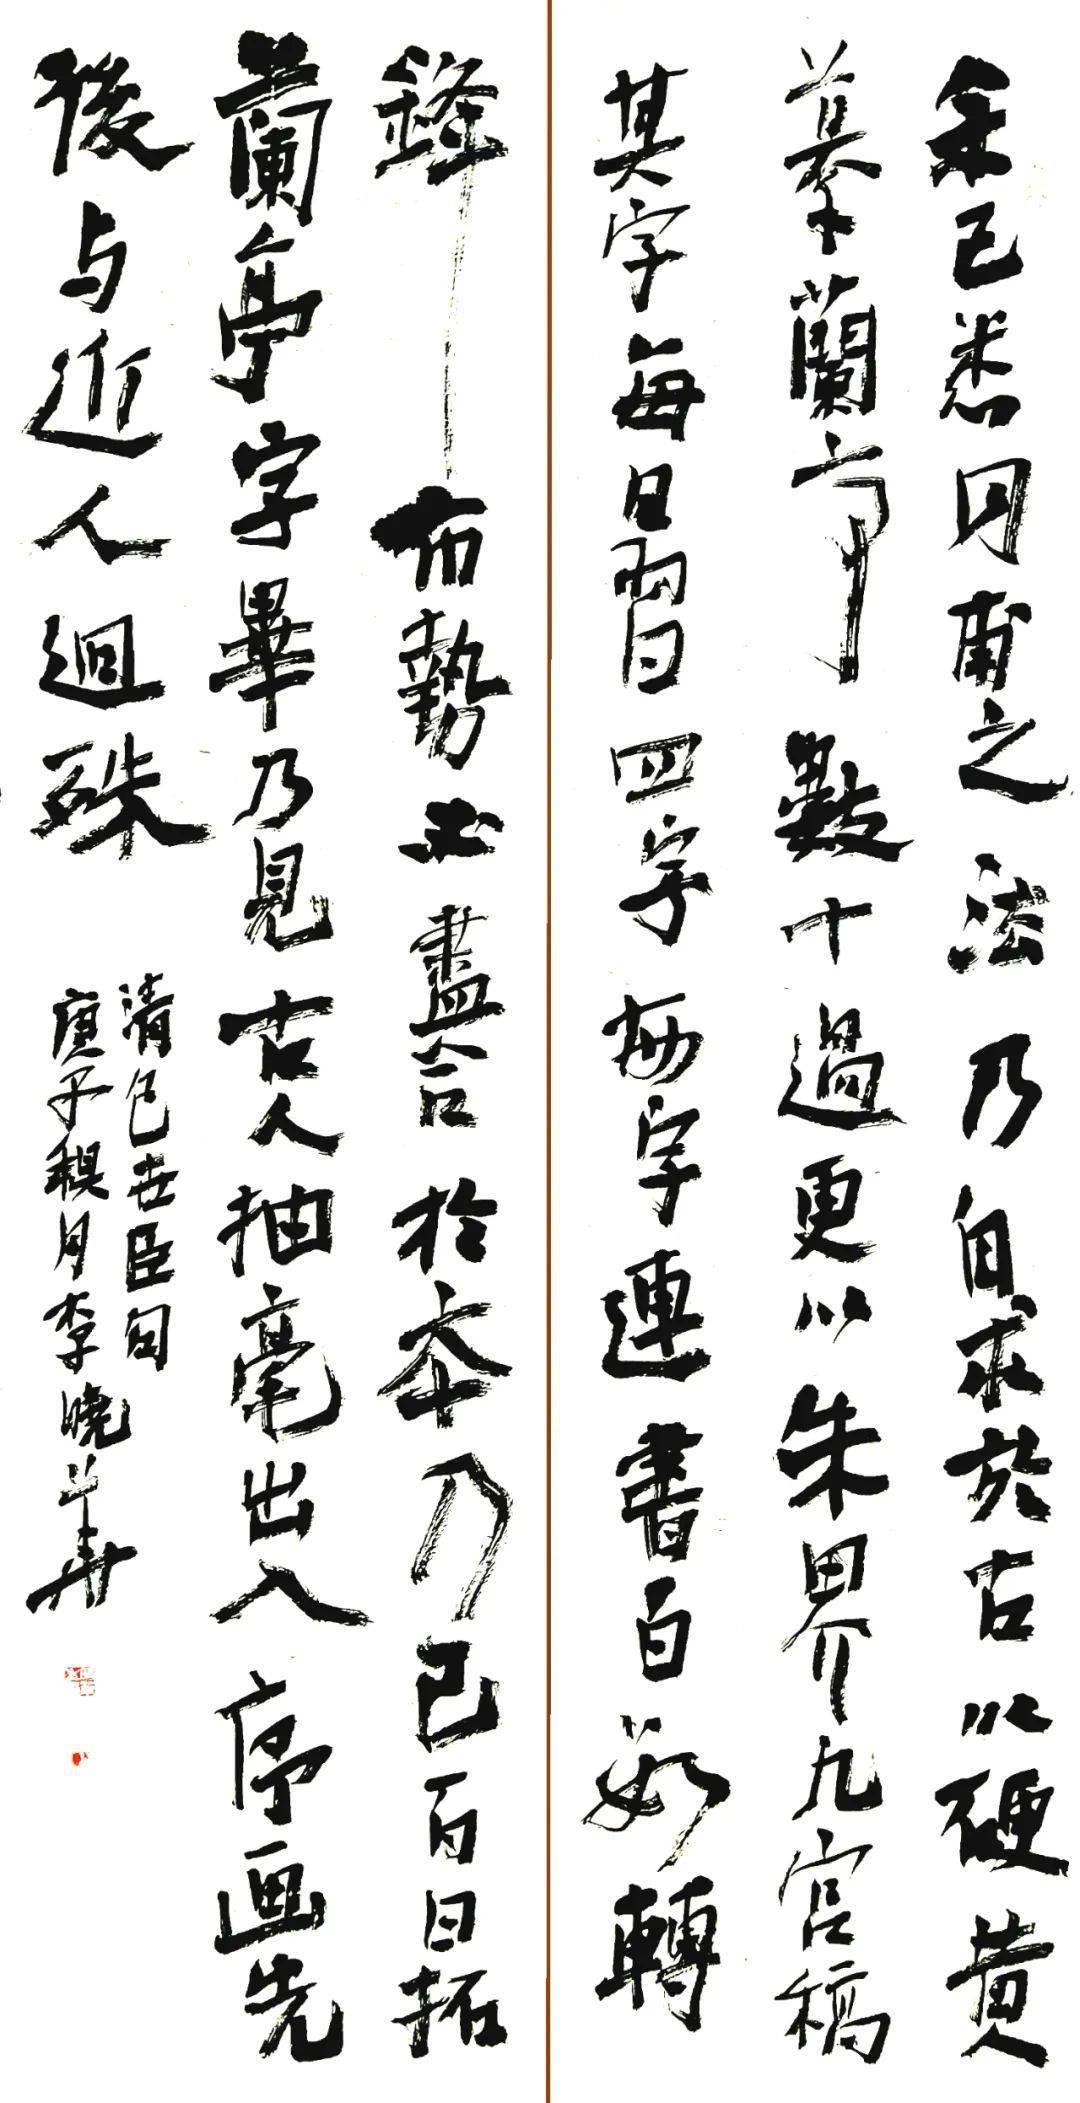 余已悉同甫之法乃自求於古以硬黄
摹蘭亭數十過更以朱界九宫稿
其字每日習四字每字連書百數轉
鋒布勢必盡合於本乃已百日拓
蘭亭字畢乃見古人抽毫出入序画先
後与近人迥殊
清包世臣句
庚子穓月李曉華